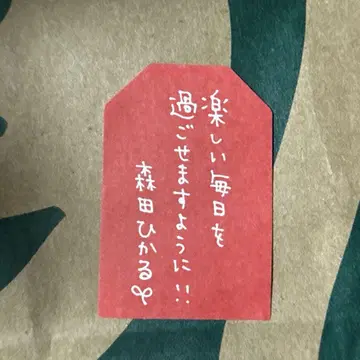 楽しい毎日を
過ごせますように!!
森田ひかる